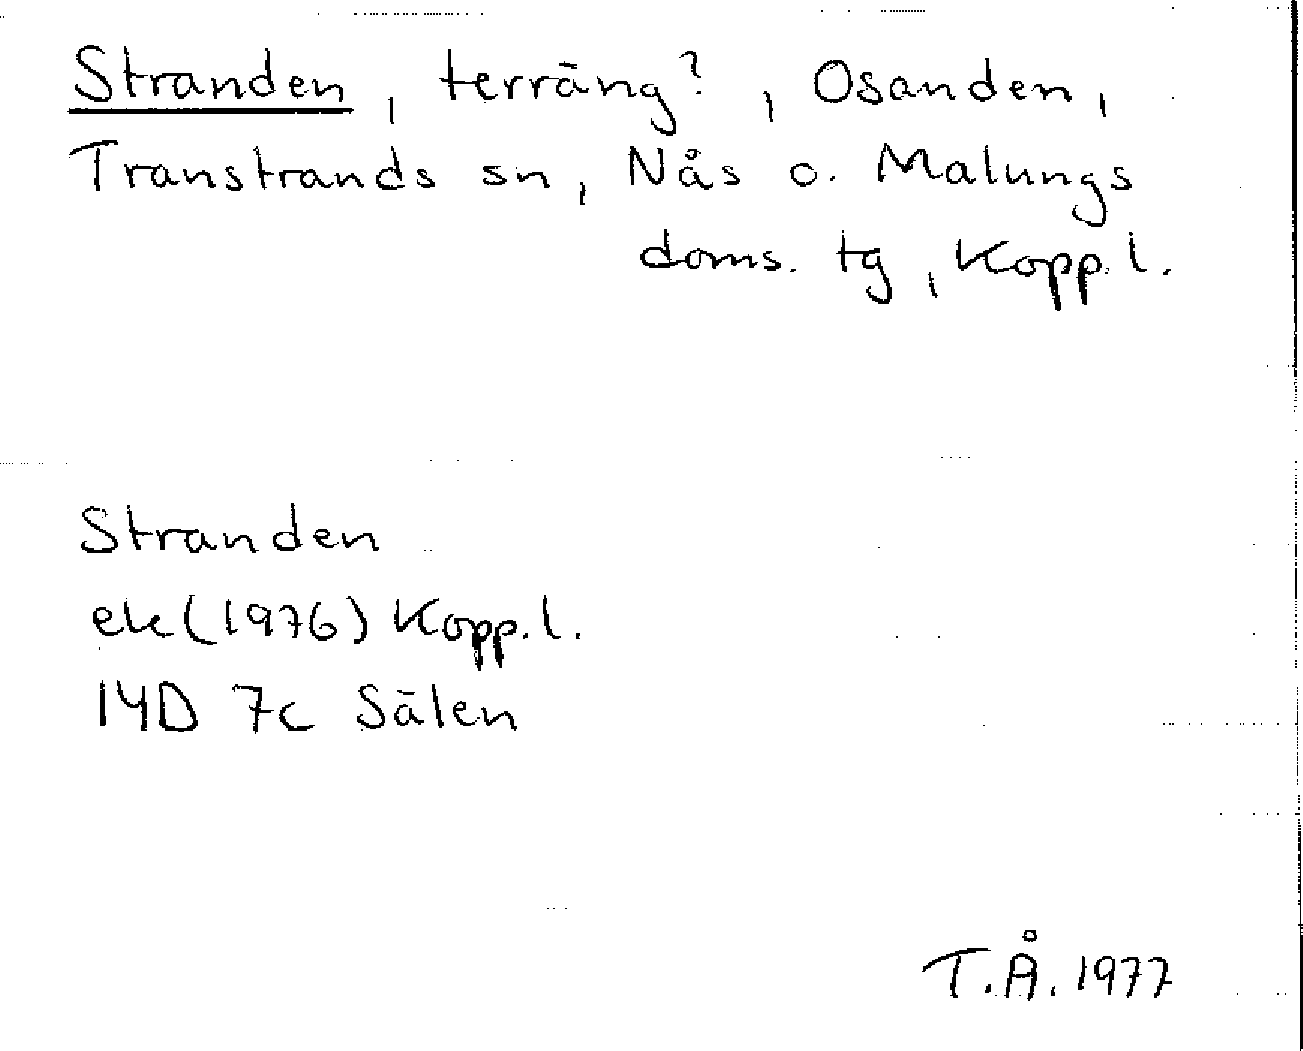 Stranden, terräng?, Osanden,
Transtrands sn, Nås o. Malungs
doms. tg, Kopp. l.
Stranden
ek (1976) Kopp. l.
14D 7c Sälen
T.Å. 1977